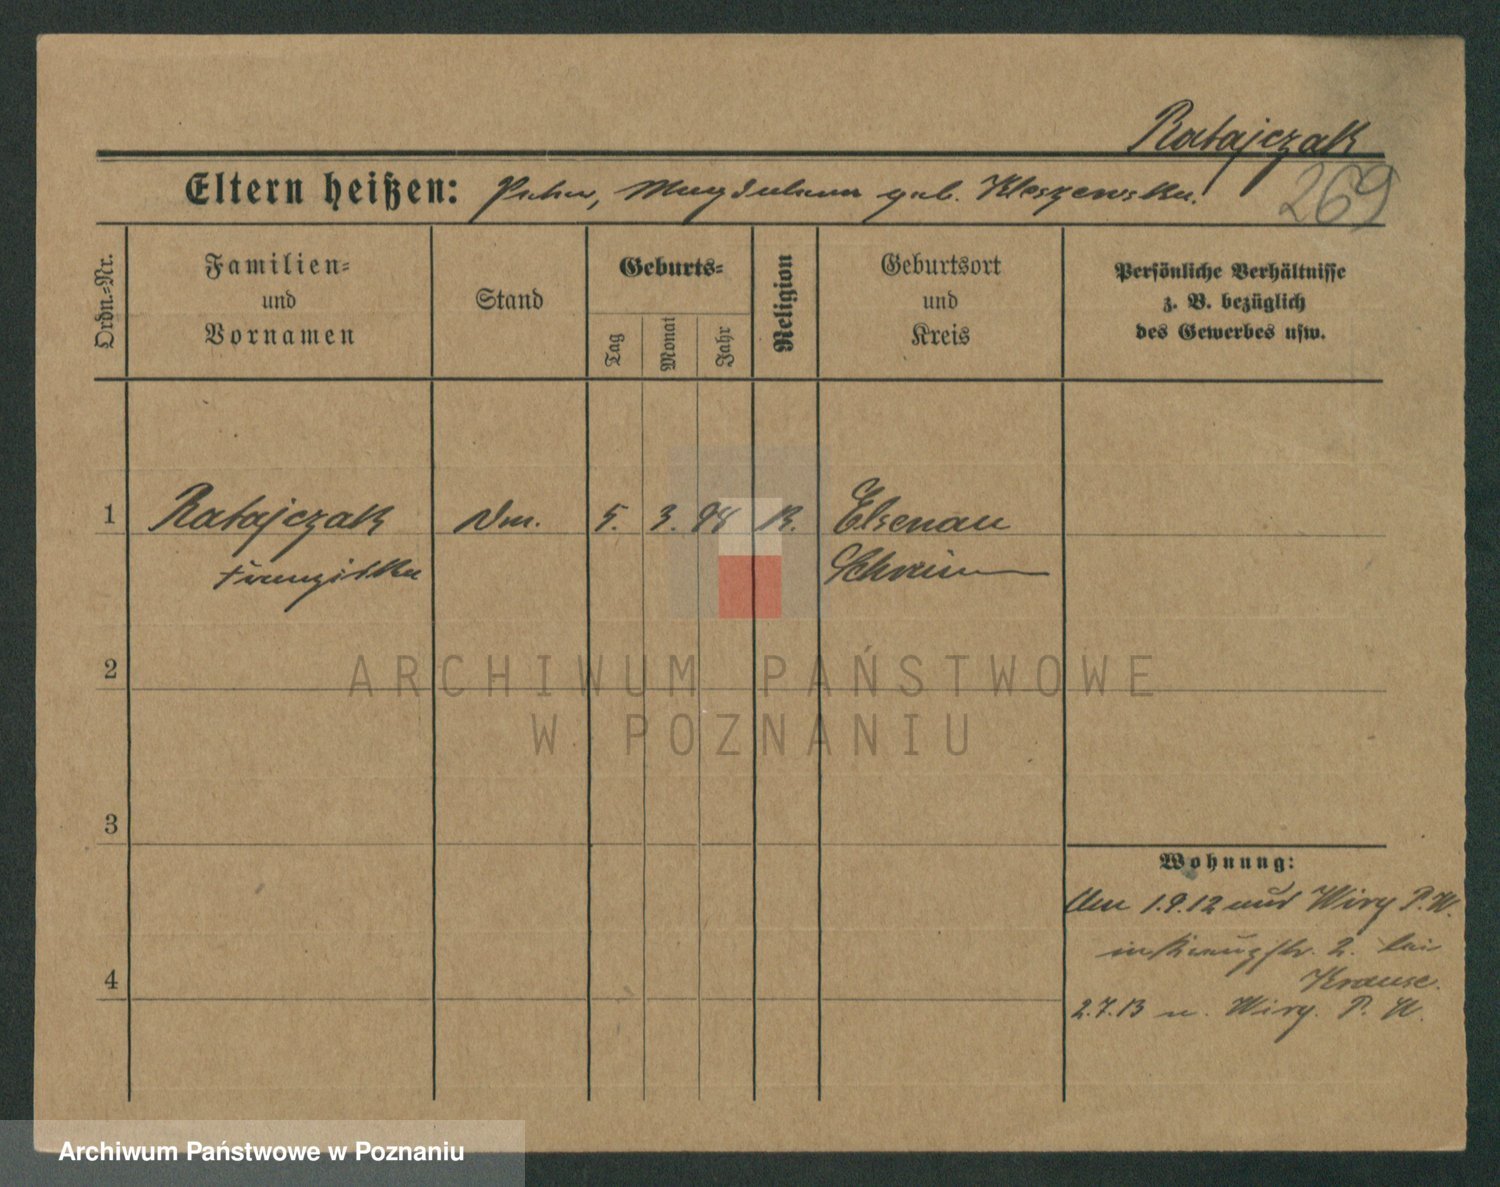 Ratajczak
269
Eltern heißen: Peter, Magdalena geb. Kleszewska.
Ordn.-Nr.
Familien- und Vornamen
Stand
Geburts-
Tag
Monat
Jahr
Religion
Geburtsort und Kreis
Persönliche Verhältnisse
z. B. bezüglich
des Gewerbes usw.
1 Ratajczak Dm. 5. 3. 98 K. Elsenau
Franziska Schrim
2
ARCHIWUM PAŃSTWOWE
W POZNANIU
3
Wohnung:
1.9.12 Wiry P.W.
in 2. bei
4
Krause.
2.7.13 n. Wiry. P. W.
Archiwum Państwowe w Poznaniu